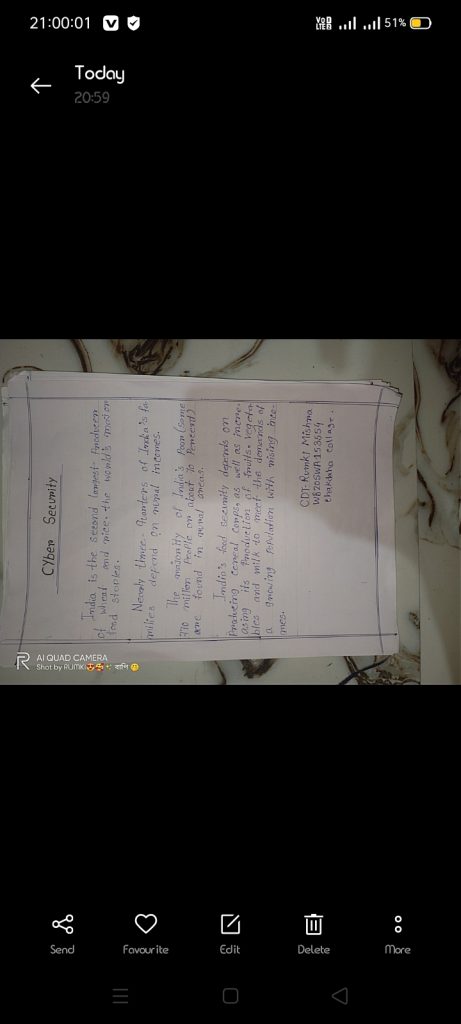 21:00:01
Vo
LTE 2
51%
Today
20:59
Cyber Security
India is the second largest Producer
of wheat and rice, the world's major
food staples.
Nearly three-quarters of India's fa
milies depend on rural incomes.
The majority of India's Poor (some
770 million People or about 70 Percent)
are found in rural areas.
India's food security depends on
Producing cereal corps, as well as incre-
asing its Production of fruits, vegeta
bles and milk to meet the demands of
a growing population with rising inco-
mes.
CDT-Rumki Mishra
WB20SWA153654
Chakdaha collage.
R
AI QUAD CAMERA
Shot by RUMKI😍🥰 রাখি 🤭
Send
Favourite
Edit
Delete
More